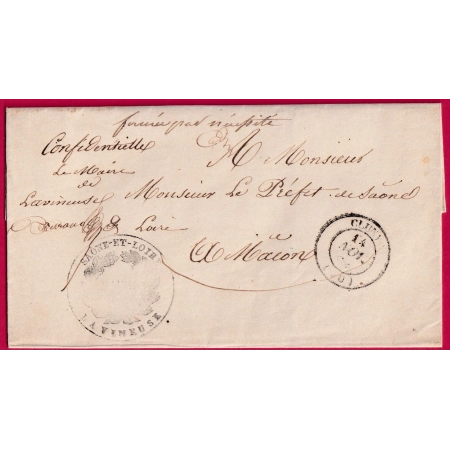 fermée par nécessité
Confidentielle
Le Maire
de
Lavineuse
A Monsieur
Monsieur Le Préfet de Saône
& Loire
A Macon
SAONE-ET-LOIRE
LA VINEUSE
CLUNY
14
(70)